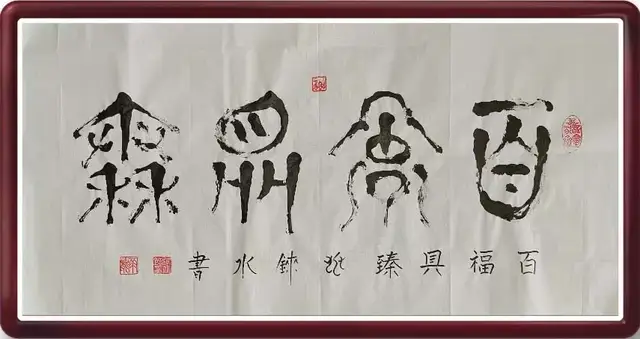 百福具臻
百福具臻水書